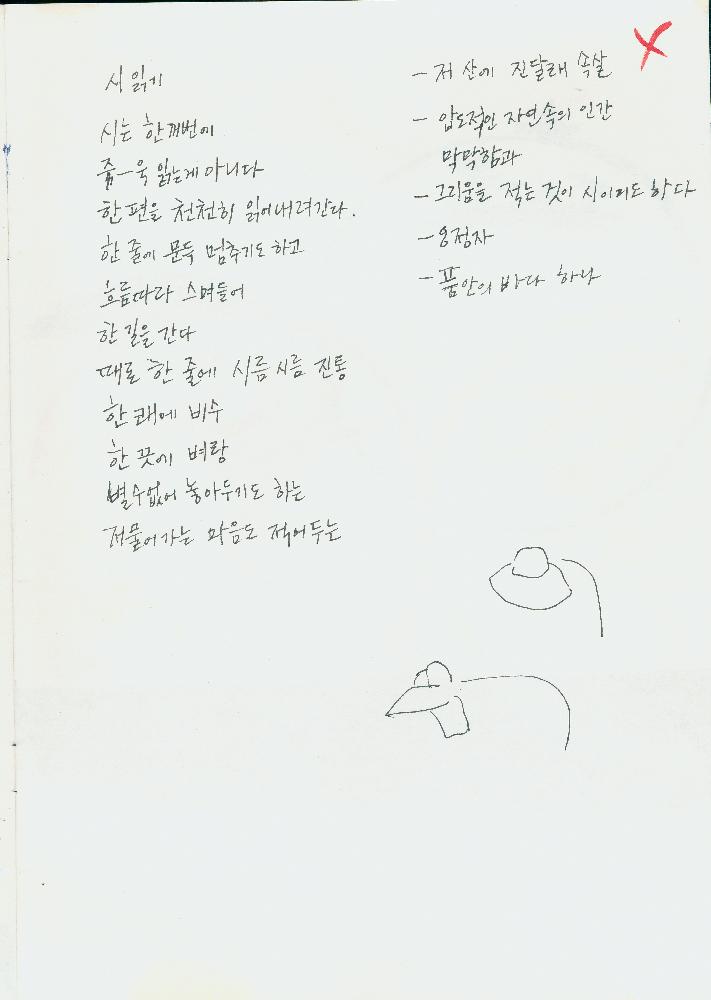 시 읽기
시는 한꺼번에
쥬ㅡ욱 읽는게 아니다
한편을 천천히 읽어내려간다.
한 줄에 문득 멈추기도 하고
흐름따라 스며들어
한 길을 간다
때로 한 줄에 시름시름 진통
한 쾌에 비수
한 끗에 벼랑
별수없이 놓아두기도 하는
저물어가는 마음도 적어두는
- 저 산에 진달래 속살
- 압도적인 자연속의 인간
막막함과
- 그리움을 적는 것이 시이기도 하다
- 용정자
- 품안의 바다 하나